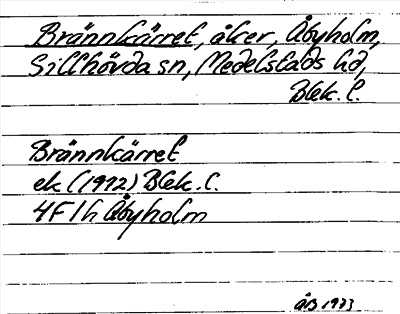 Brännkärret, åker, Åbyholm,
Sillhövda sn, Medelstads hd,
Blek. l.
Brännkärret
ek (1972) Blek. l.
4F 1h Åbyholm
ÅB 1973